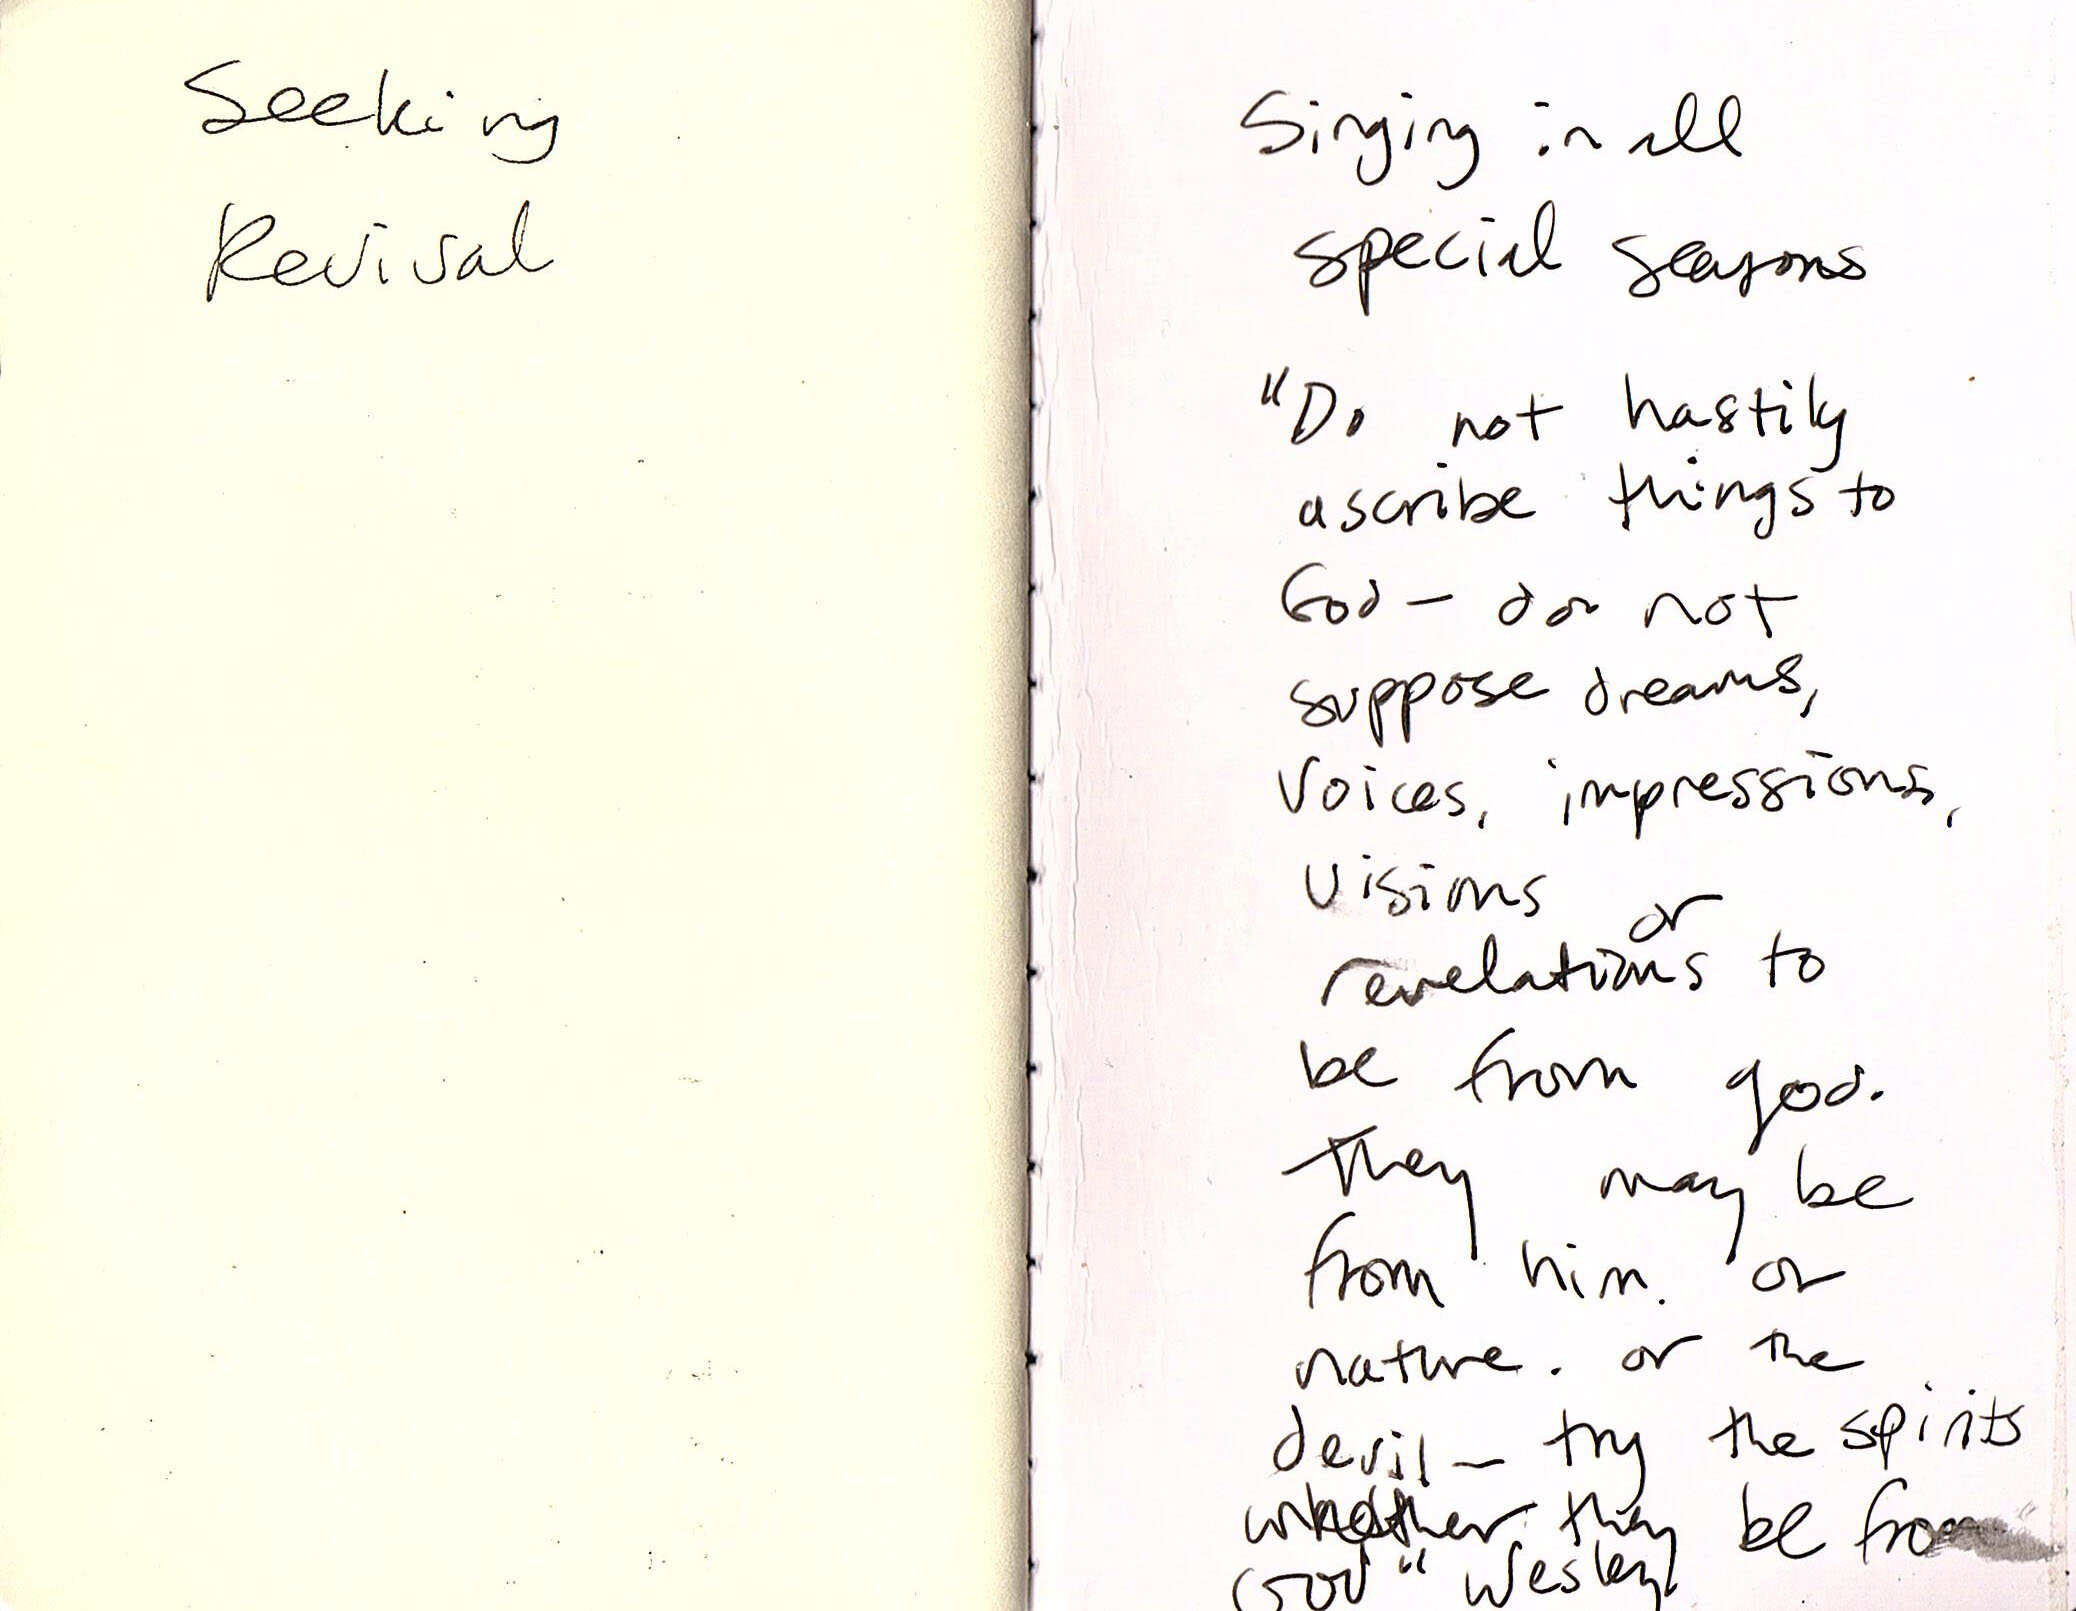 Seeking
Revival
Singing in all
special seasons
"Do not hastily
ascribe things to
God - do not
suppose dreams,
Voices, impressions,
visions or
revelations to
be from god.
They may be
from him. or
nature. or the
devil - try the spirits
whether they be from
God" Wesley